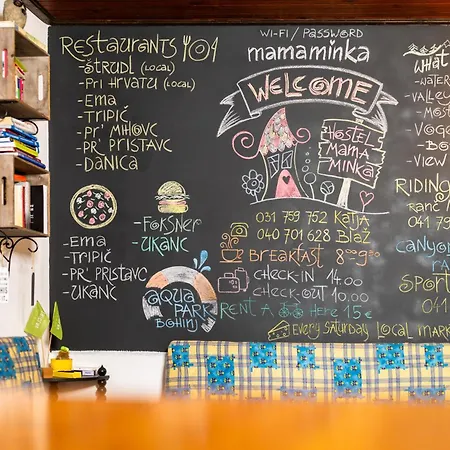 Restaurants
- Štrudl (local)
- Pri Hrvatu (local)
- Ema
- Tripič
- Pr' Mihovc
- Pr' Pristavc
- Danica
- Ema
- Tripič
- Pr' Pristavc
- Ukanc
- Foksner
- Ukanc
aqua
park
Bohinj
Wi-Fi / Password
mamaminka
Welcome
Hostel
Mama
Minka
031 759 752 Katja
040 701 628 Blaž
Breakfast 8
check-in 14.00
check-out 10.00
Rent a
Here 15 €
Every Saturday Local Mark
What
- Water
- Valley
- Most
- Voge
- Bo
- View
Riding
Ranč
041 79
Canyon
Ra
Sport
041